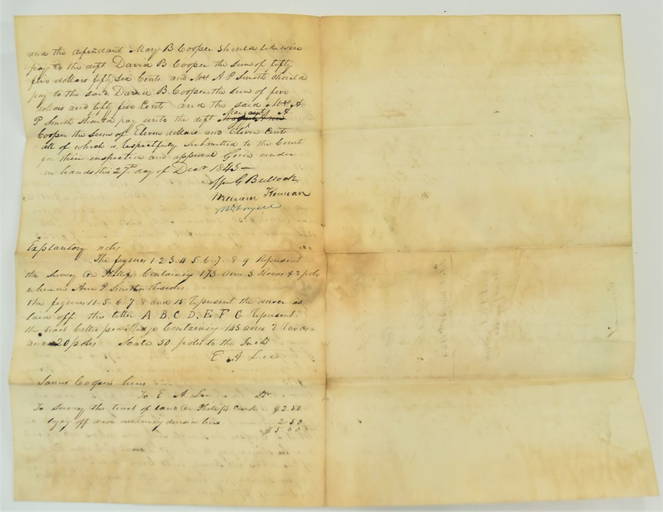 and the defendant Mary B Cooper should likewise
pay to the deft David B Cooper the sum of fifty
five dollars fifty six Cents and Mrs A P Smith should
pay to the said David B Cooper the sum of five
dollars and fifty five Cents and the said Mrs A
P Smith should pay unto the deft Margaret A
Cooper the sum of Eleven dollars and Eleven Cents
all of which is respectfully submitted to the Court
for their inspection and approval Given under
our hands this 27th day of Decr 1845
G Bullock
William
Explanatory note
The figures 1-2-3-4-5-6-7-8-9 Represent
the Survey on Containing 173 acres 3 & 2 poles
whereon Ann P Smith
The figures 11-5-6-7-8 and Represent the dower as
laid off. the letters A B C D E F G Represent
the Containing 145 acres 2
and 20 poles Scale 50 poles to the Inch
E A Lee
Cooper heirs
To E A Lee Dr
To Survey the tract of land on Creek $2.50
laying off and dower 2.50
$5.00